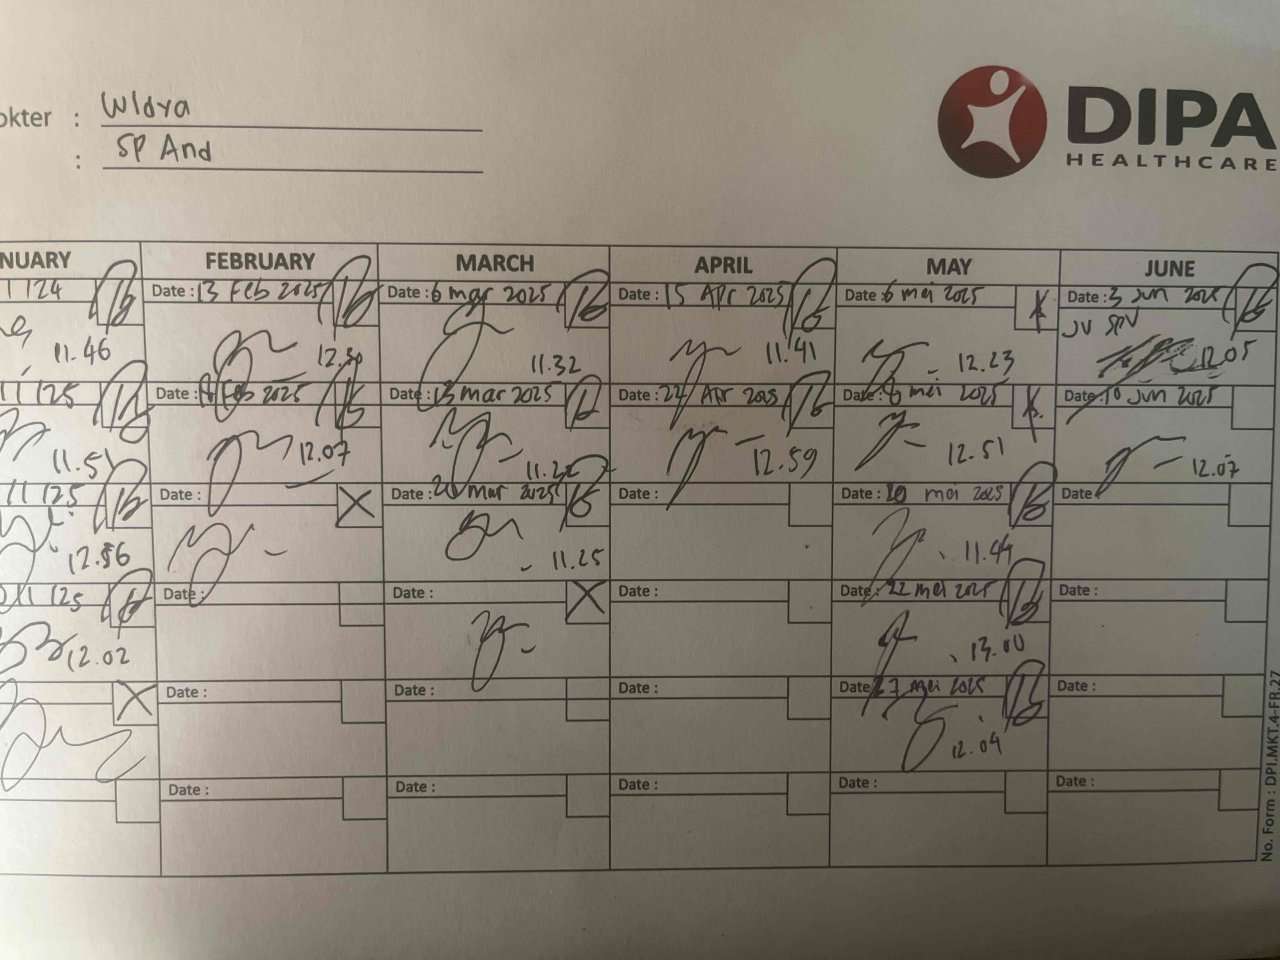 okter : Wldya
: SP And
DIPA
HEALTHCARE
NUARY FEBRUARY MARCH APRIL MAY JUNE
1 124 Date : 13 Feb 2025 Date : 6 mar 2025 Date : 15 Apr 2025 Date : 6 mei 2025 Date : 3 Jun 2025
JV SPV
11.46 12.30 11.32 11.41 12.23 12.05
11 125 Date : Feb 2025 Date : 13 mar 2025 Date : 22 Apr 2025 Date : 8 mei 2025 Date : 10 Jun 2025
11.51 12.07 11.22 12.59 12.51 12.07
11 125 Date : Date : 20 Mar 2025 Date : Date : 20 mei 2025 Date
12.56 11.25 11.44
11 125 Date : Date : Date : Date : 22 mei 2025 Date :
12.02 13.00
Date : Date : Date : Date 27 mei 2025 Date :
12.04
Date : Date : Date : Date : Date :
No. Form : DPI.MKT.4-FR.27